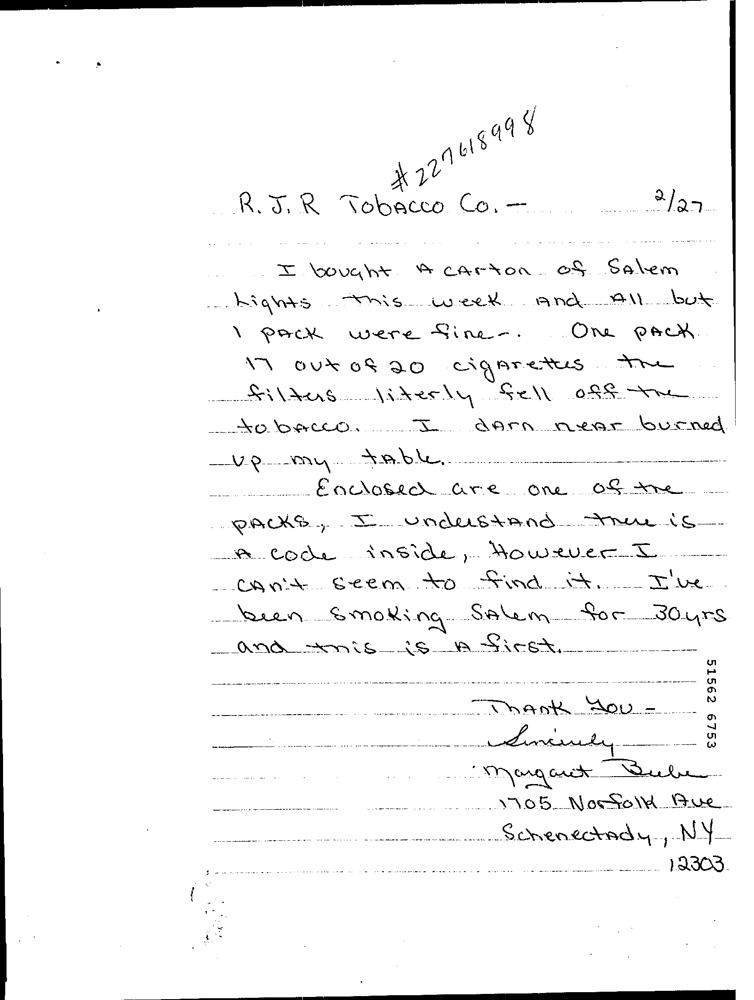 #227618998
R.J.R Tobacco Co. — 2/27
I bought A carton of Salem
Lights this week and All but
1 pack were fine-. One pack
17 out of 20 cigarettes the
filters literly fell off the
tobacco. I darn near burned
up my table.
Enclosed are one of the
packs, I understand there is
A code inside, However I
can't seem to find it. I've
been smoking Salem for 30yrs
and this is A first.
Thank You -
Sincerely
Margaret
1705 Norfolk Ave
Schenectady, NY
12303
51562 6753